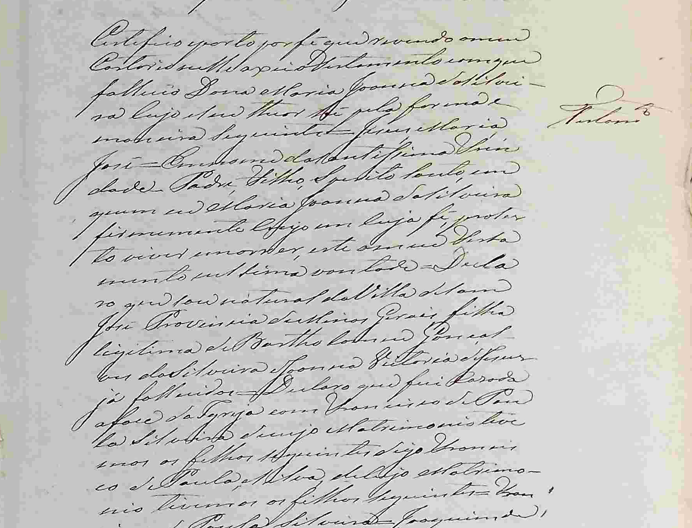 Certifico e porto por fé que revendo em meu
Cartorio nelle axei o Testamento com que
falleceu Dona Maria Joanna da Silvei-
ra cujo theor he pela forma e
maneira seguinte = Jesus Maria
José = Em nome da Santissima Trin
dade Padre, Filho, Spirito Santo em
quem eu Maria Joanna da Silveira
firmemente Creio em cuja fé, protes
to viver e morrer, este o meu Testa
mento e ultima vontade = Decla
ro que sou natural da Villa de Sam
José Provincia de Minas Gerais, filha
legitima de Bartholomeu Gonçal
ves da Silveira e Joanna Victoria de Jesus
já fallecidos = Declaro que fui Cazada
a face da Igreja com Francisco de Pau
la Silveira de cujo Matrimonio tive
mos os filhos seguintes digo Francis
co de Paula e Silva, de cujo Matrimo-
nio tivemos os filhos seguintes = Fran
Paula Silveira = Joaquim de